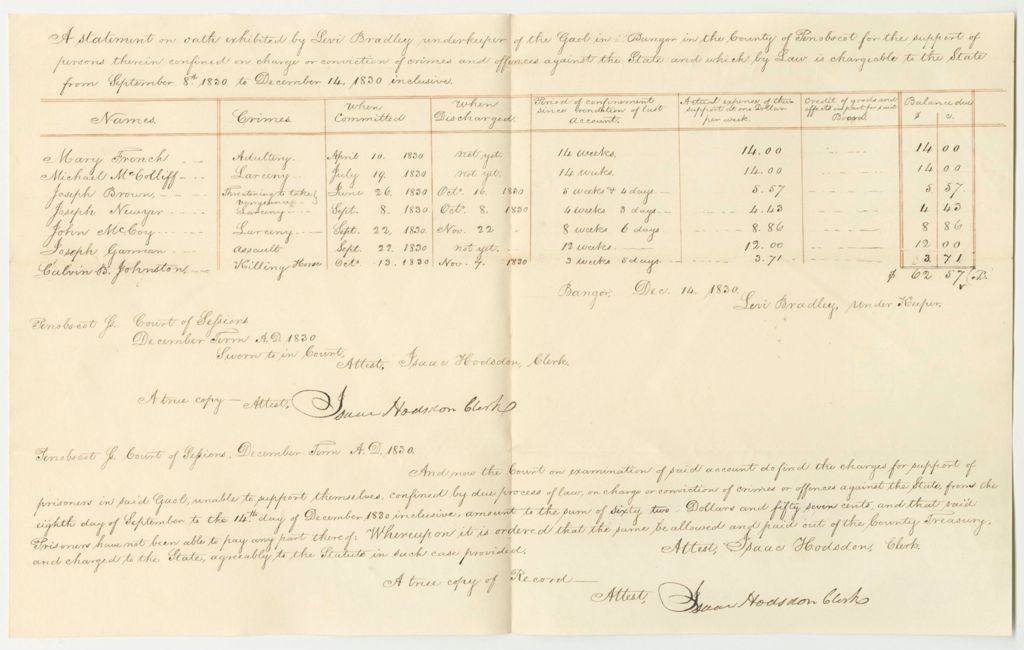 A statement on oath exhibited by Levi Bradley underkeeper of the Gaol in Bangor in the County of Penobscot for the support of
persons therein confined on charge or conviction of crimes and offences against the State and which by Law is chargeable to the State
from September 8th 1830 to December 14, 1830 inclusive.
Names. Crimes. When Committed When Discharged. Period of confinement since rendition of last account. Actual expense of their support at one Dollar per week. Credit of goods and effects in part for said Board. Balance due $ c.
Mary French Adultery. April 10. 1830 not yet. 14 weeks. 14.00 14 00
Michael McColliff Larceny. July 19. 1830 not yet. 14 weeks. 14.00 14 00
Joseph Brown, Threatening to take vengeance June 26. 1830 Octo. 16. 1830 5 weeks & 4 days 5.57 5 57
Joseph Larceny Sept. 8. 1830 Octo. 8. 1830 4 weeks 3 days 4.43 4 43
John McCoy Larceny Sept. 22. 1830 Nov. 22 8 weeks 6 days 8.86 8 86
Joseph assault Sept. 22. 1830 not yet. 12 weeks. 12.00 12 00
Calvin B. Johnston Killing Horse Octo. 13. 1830 Nov. 7. 1830 3 weeks 5 days 3.71 3 71
$ 62 57
Bangor, Dec. 14. 1830.
Levi Bradley, Under Keeper.
Penobscot Ss. Court of Sessions
December Term A.D. 1830
Sworn to in Court,
Attest, Isaac Hodsdon, Clerk.
A true copy — Attest, Isaac Hodsdon Clerk
Penobscot Ss. Court of Sessions, December Term A.D. 1830.
And now the Court on examination of said account do find the charges for support of
prisoners in said Gaol, unable to support themselves, confined by due process of law, on charge or conviction of crimes or offences against the State, from the
eighth day of September to the 14th day of December 1830, inclusive, amount to the sum of sixty two Dollars and fifty seven cents, and that said
Prisoners have not been able to pay any part thereof. Whereupon it is ordered that the same be allowed and paid out of the County Treasury.
and charged to the State, agreeably to the Statute in such case provided.
Attest, Isaac Hodsdon, Clerk.
A true copy of Record —
Attest, Isaac Hodsdon Clerk